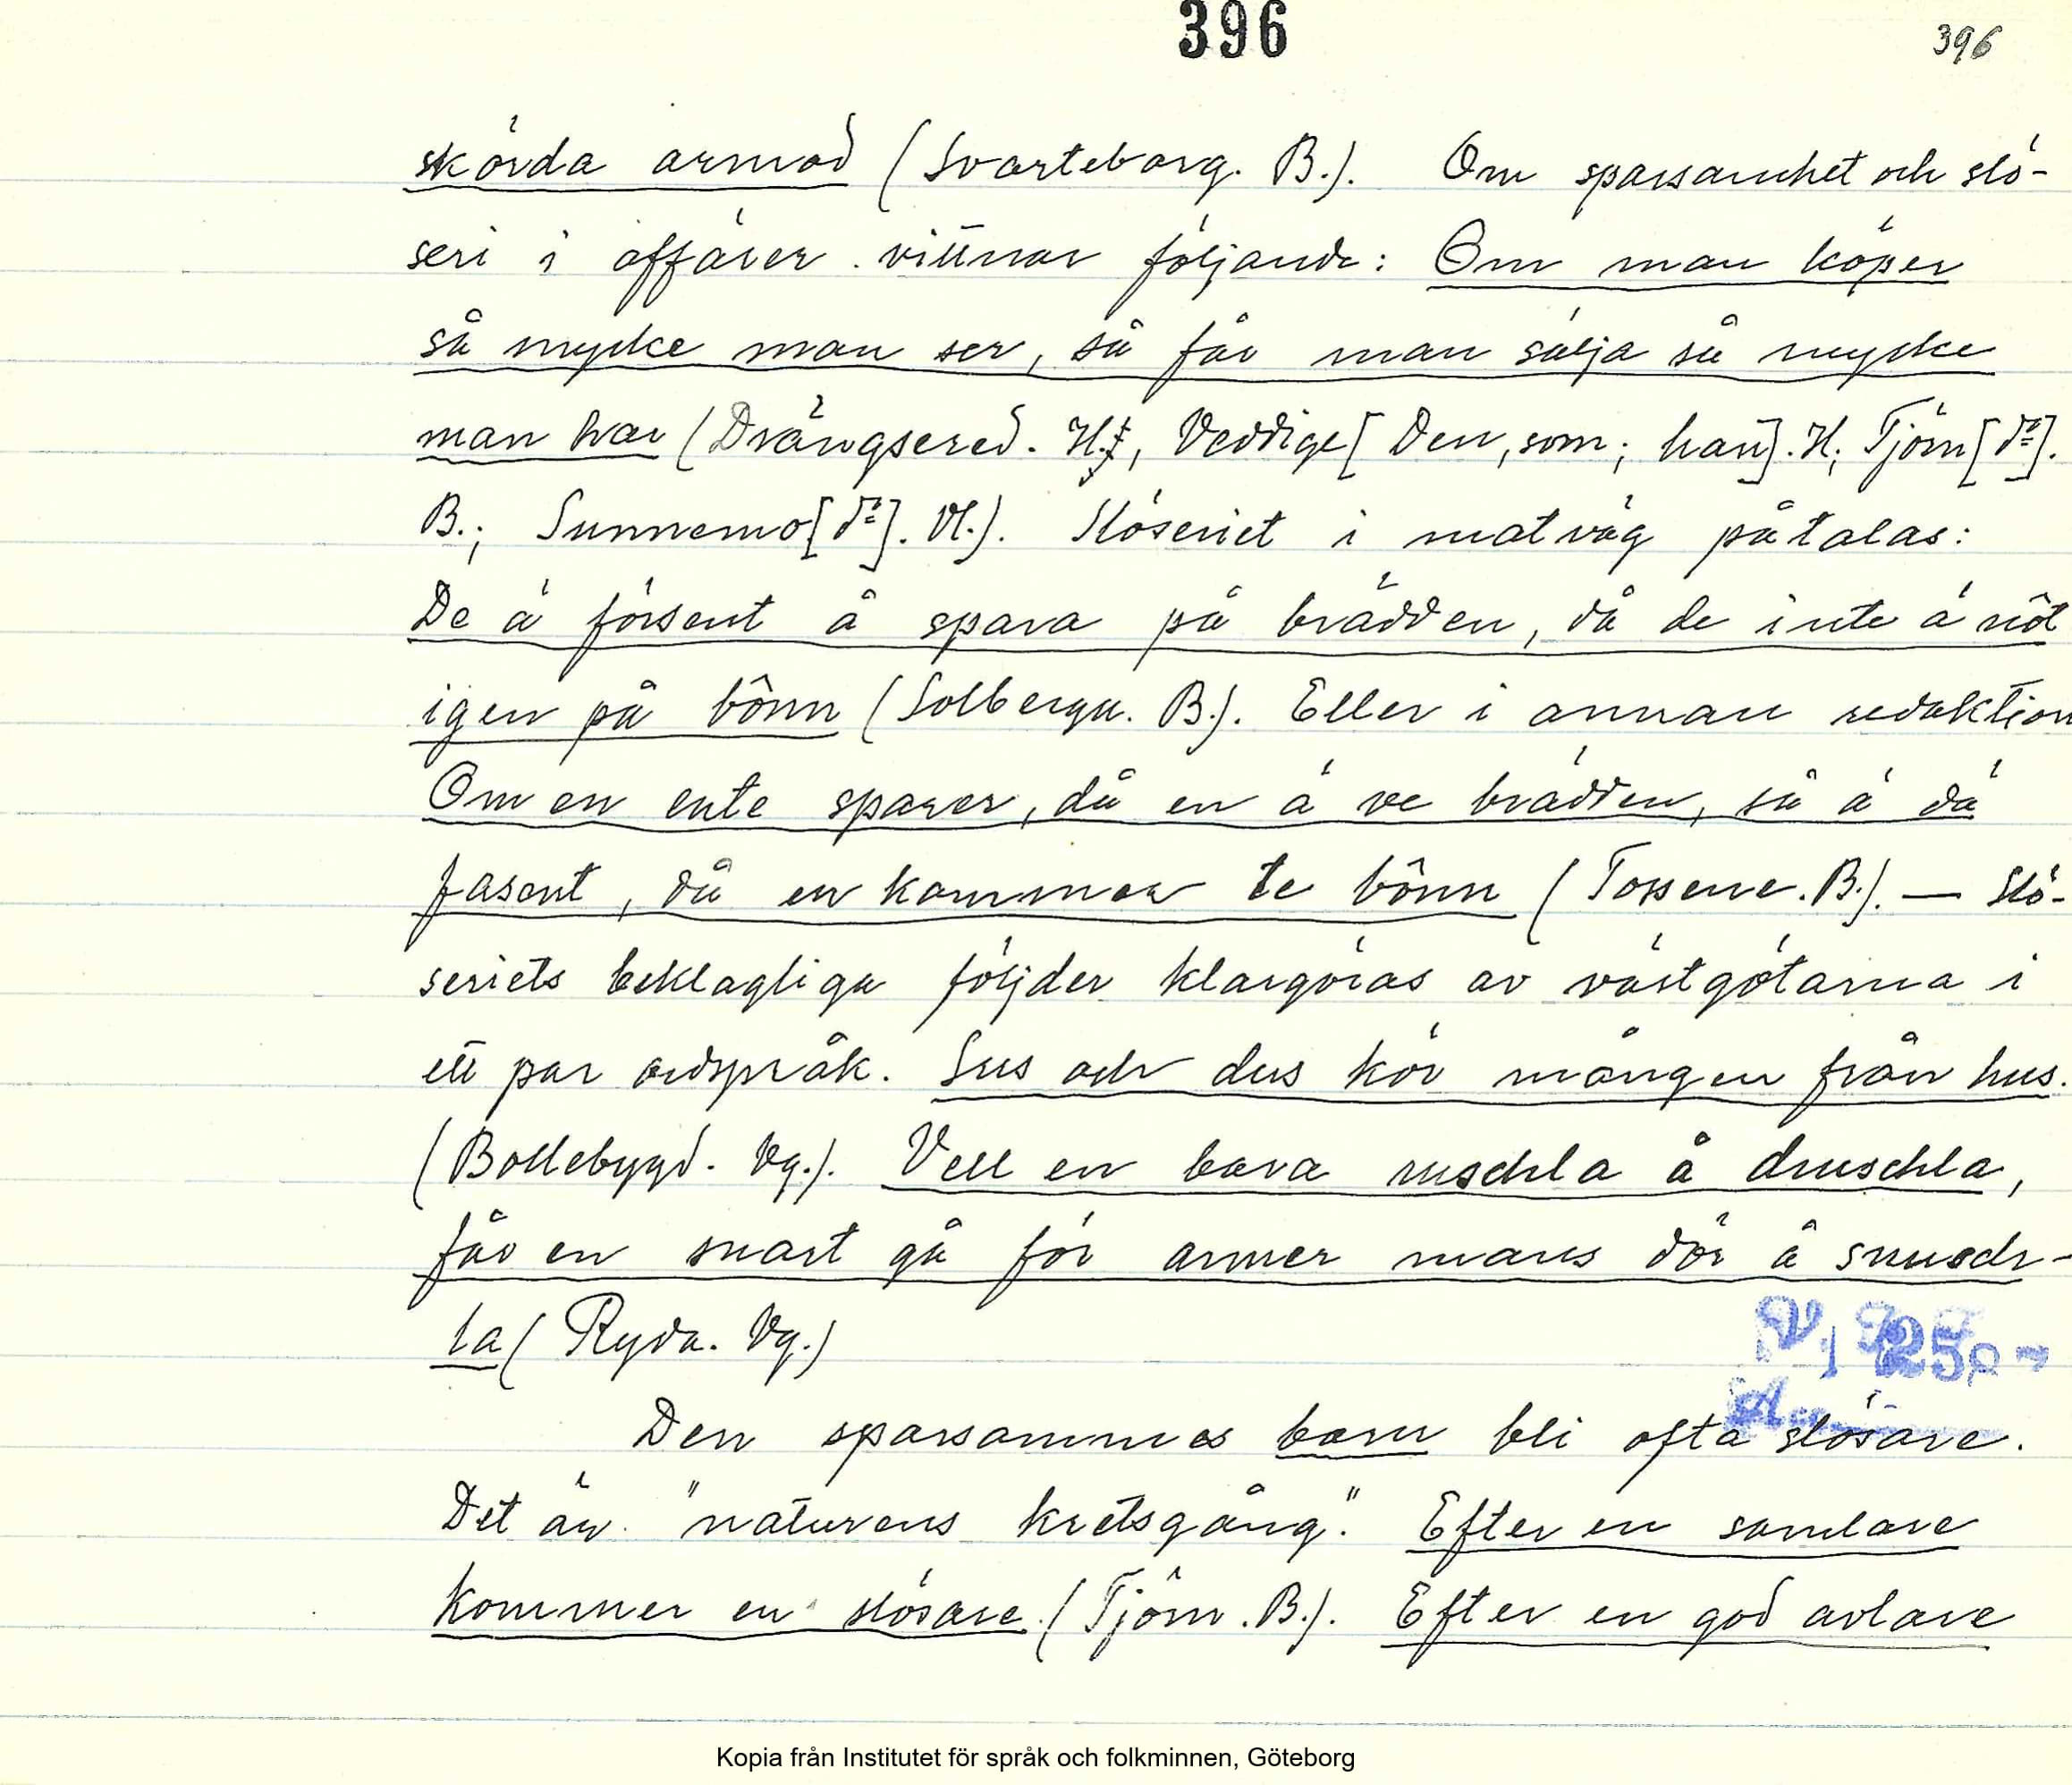 396
396
skörda armod (Svarteborg. B.). Om sparsamhet och slö-
seri i affärer vittnar följande: Om man köper
så mycke man ser, så får man sälja så mycke
man har (Drängsered. H., Veddige [Den, som; han]. H; Tjörn [do].
B.; Sunnemo [do]. Vl.). Slöseriet i matväg påtalas:
De ä försent å spara på brädden, då de inte ä nöt
igen på bônn (Solberga. B.). Eller i annan redaktion
Om en ente sparer, då en ä ve brädden, så ä dä
fasent, då en kommer te bônn (Tossene. B.). — Slö-
seriets beklagliga följder klargöras av västgötarna i
ett par ordspråk. Sus och dus kör mången från hus.
(Bollebygd. Vg.). Vell en bara ruschla å druschla,
får en snart gå för armer mans dör å snusch-
la (Ryda. Vg.)
Den sparsammes barn bli ofta slösare.
Det är "naturens kretsgång". Efter en samlare
kommer en slösare. (Tjörn. B.). Efter en god avlare
Kopia från Institutet för språk och folkminnen, Göteborg